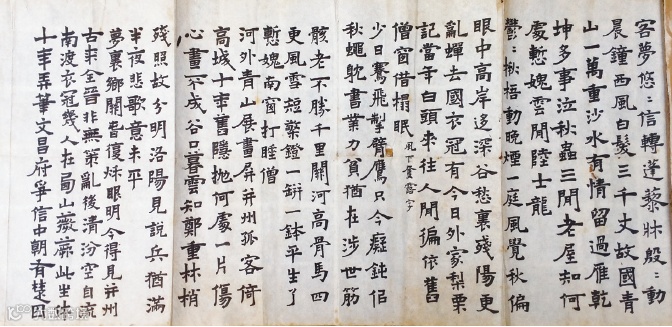 客夢悠〻信轉蓬藜牀殷〻動
晨鐘西風白髮三千丈故國青
山一萬重沙水有情留過雁乾
坤多事泣秋蟲三間老屋知何
處慙媿雲間陸士龍
鬱〻秋梧動晚煙一庭風覺秋偏
眼中高岸迻深谷愁裏殘陽更
亂蟬去國衣冠有今日外家梨栗
記當年白頭來往人間徧依舊
僧窗借榻眠 風下奪露字
少日騫飛掣臂鷹只今癡鈍侣
秋蠅躭書業力貧猶在涉世筋
骸老不勝千里關河高骨馬四
更風雪短檠鐙一缾一鉢平生了
慙媿南窗打睡僧
河外青山展畫屏并州孤客倚
高城十年舊隱抛何處一片傷
心畫不成谷口暮雲知鄭重林梢
殘照故分明洛陽見說兵猶滿
半夜悲歌意未平
夢裏鄉關春復秌眼明今得見并州
古來全晉非無策亂後清汾空自流
南渡衣冠幾人在西山薇蕨此生休
十年弄筆文昌府爭信中朝有楚囚